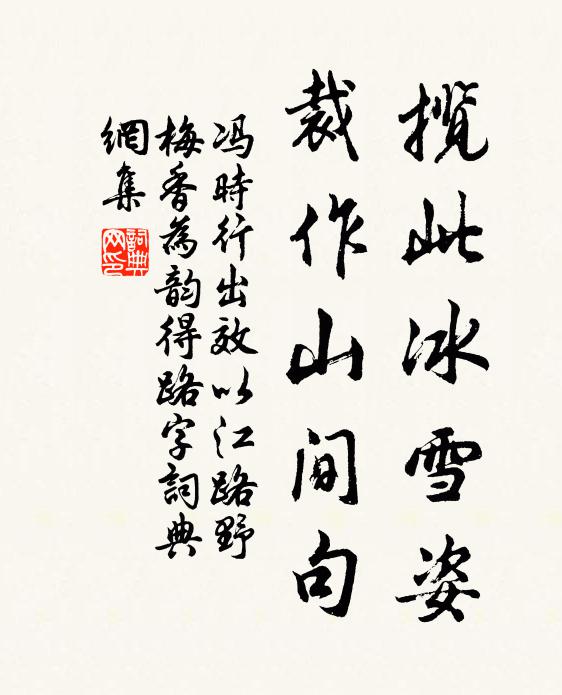 攬此冰雪姿
裁作山間句
冯時行出效以江路野
梅香為韵得路字詞典
網集
詞典网印